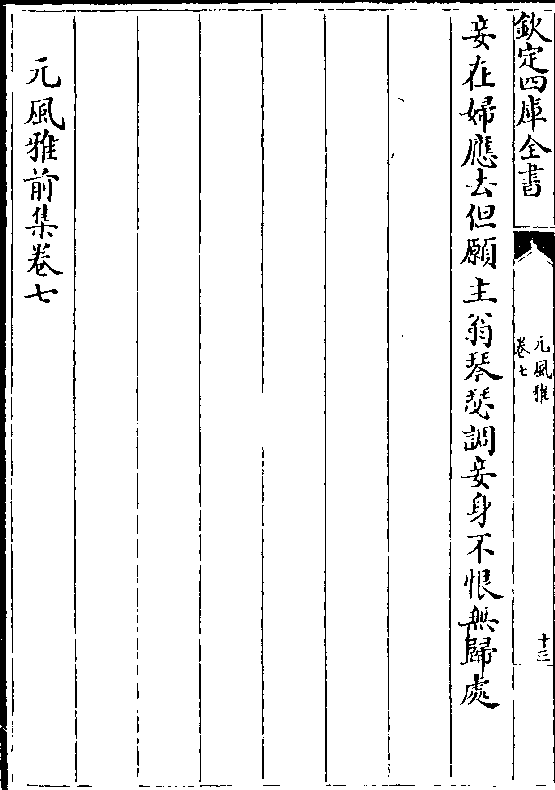 欽定四庫全書
元風雅
卷七
十三
妾在婦應去但願主翁琴瑟調妾身不恨無歸處
元風雅前集卷七